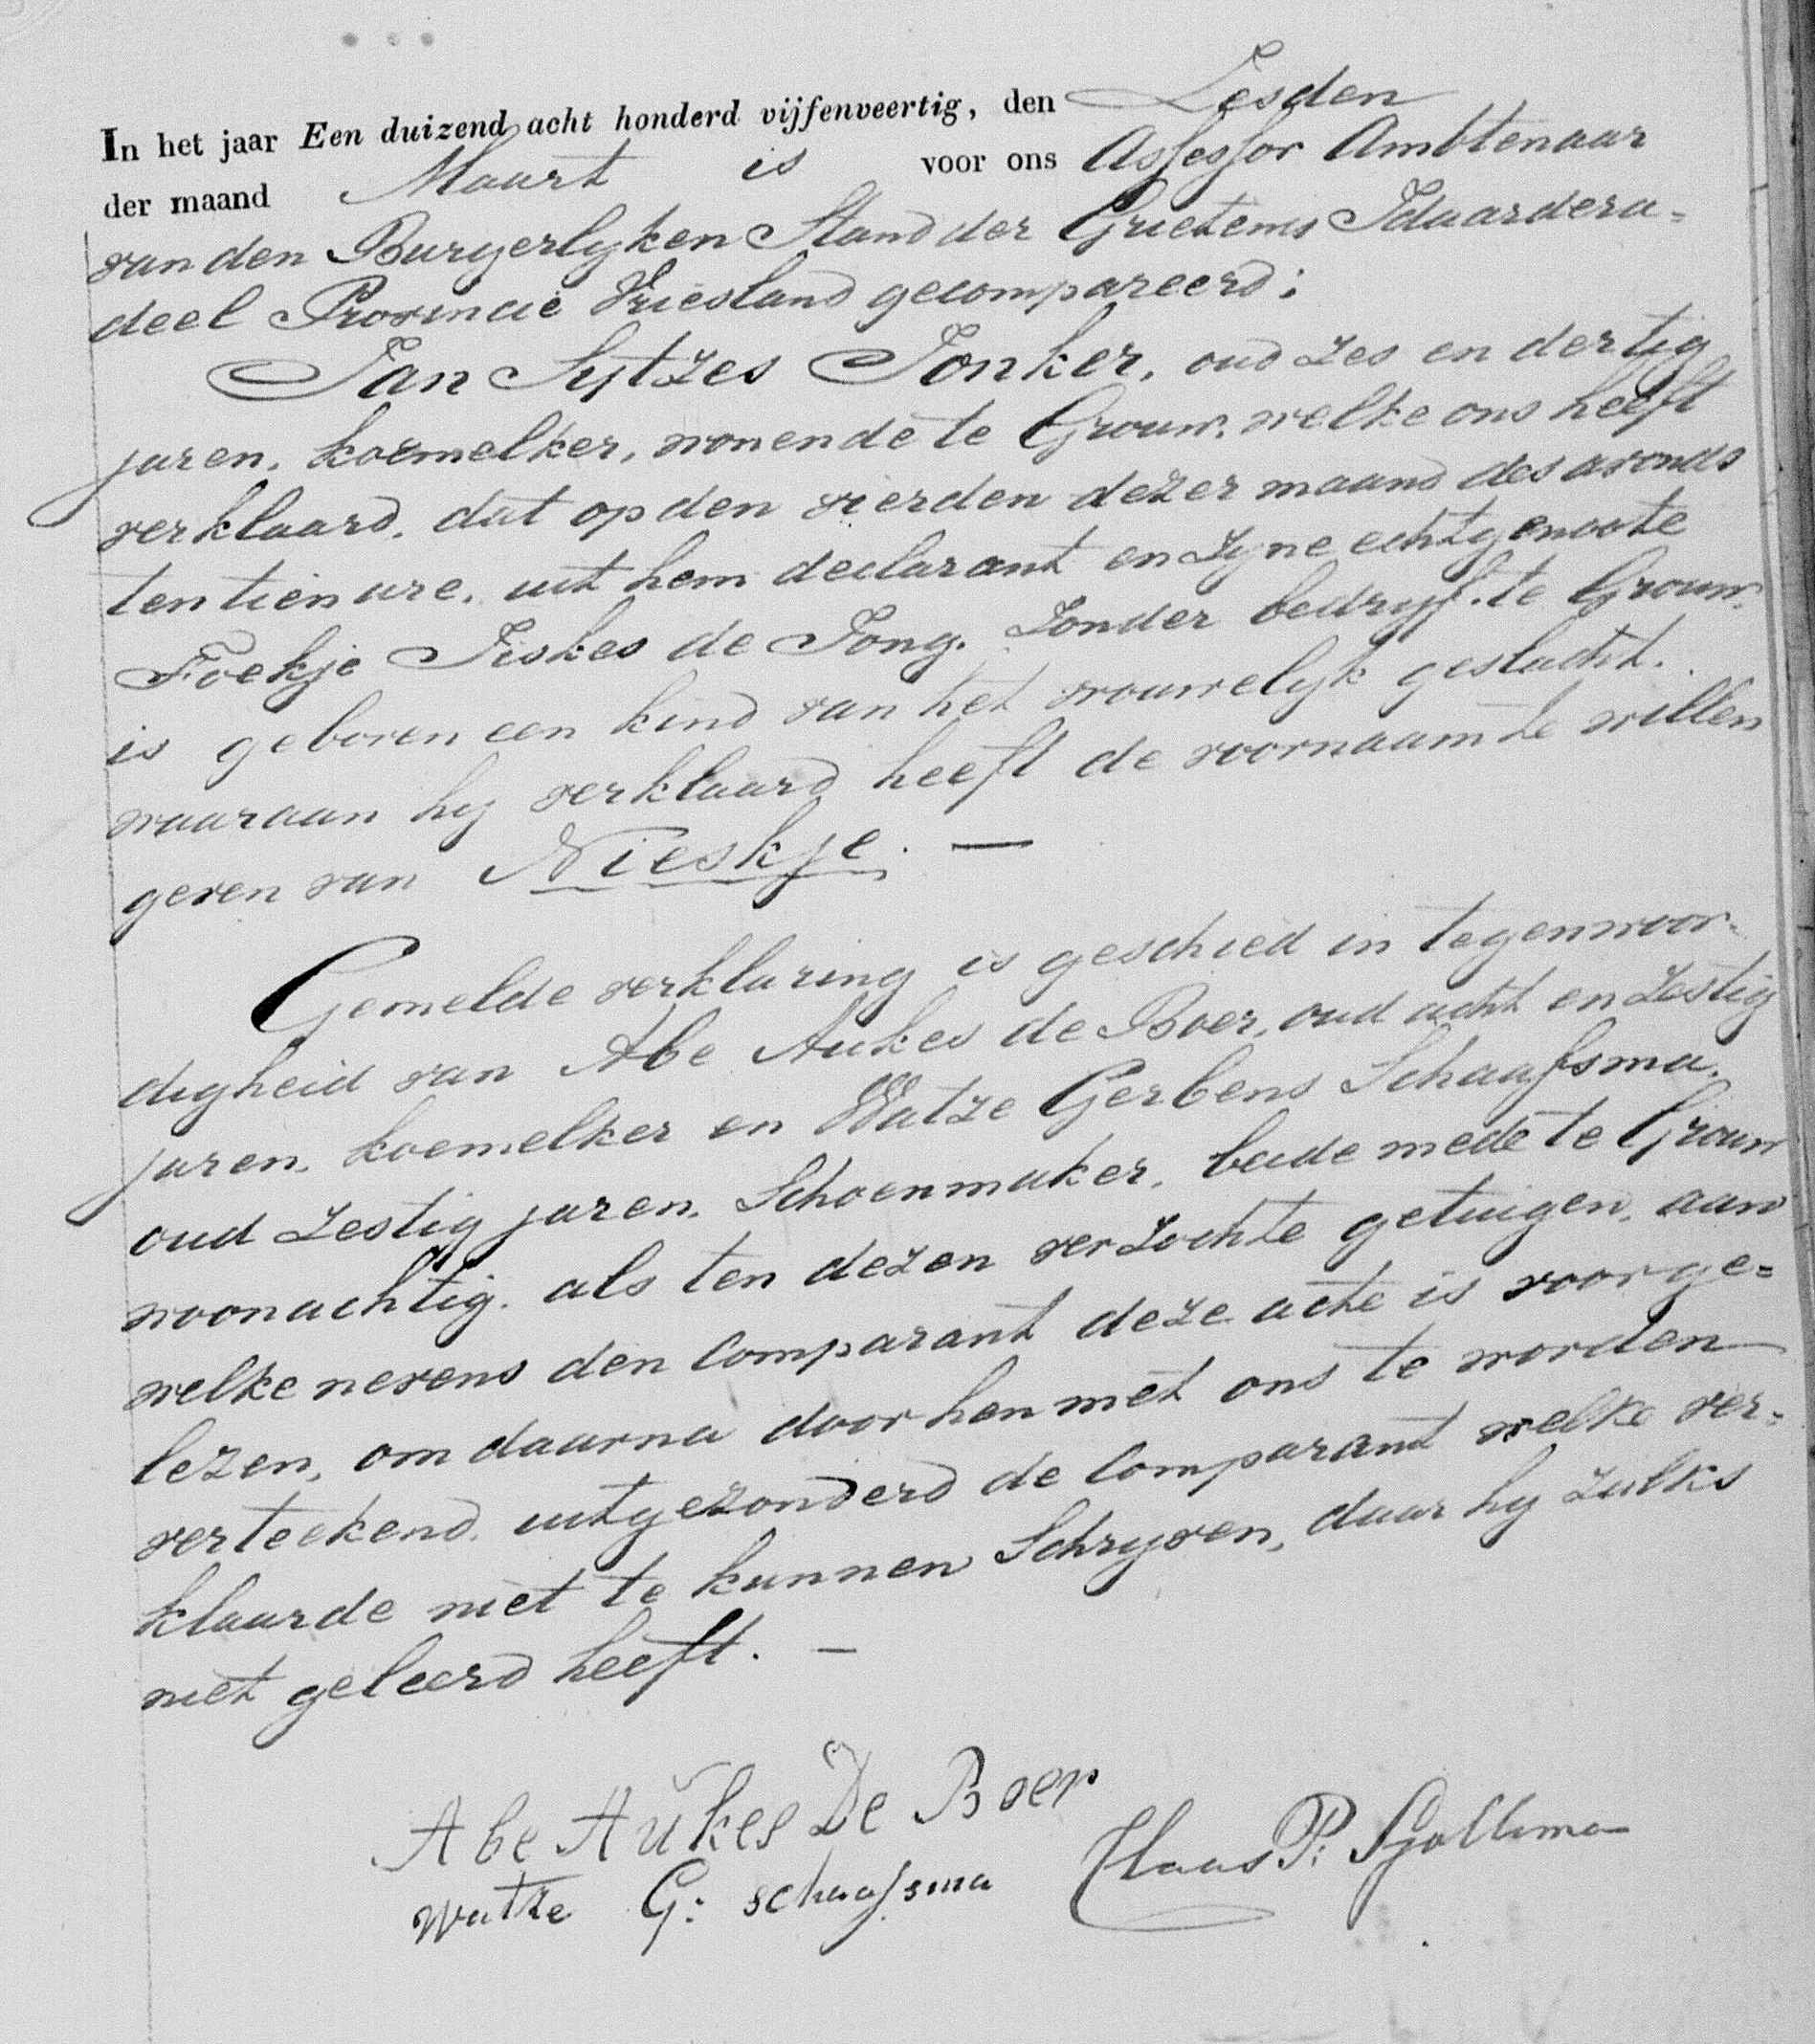 In het jaar Een duizend acht honderd vijfenveertig, den Zesden
der maand Maart is voor ons Assessor Ambtenaar
van den Burgerlyken Stand der Grietenij Idaardera=
deel Provincie Vriesland gecompareerd;
Jan Sytzes Jonker, oud zes en dertig
jaren, koemelker, wonende te Grouw, welke ons heeft
verklaard, dat op den vierden dezer maand des avonds
ten tien ure, uit hem declarant en zyne echtgenoote
Foekje Jiskes de Jong, zonder bedryf, te Grouw,
is geboren een kind van het vrouwelyk geslacht,
waaraan hy verklaard heeft de voornaam te willen
geven van Nieskje. —
Gemelde verklaring is geschied in tegenwoor-
digheid van Abe Aukes de Boer, oud acht en zestig
jaren, koemelker en Watze Gerbens Schaafsma,
oud zestig jaren, Schoenmaker, beide mede te Grouw
woonachtig, als ten dezen verzochte getuigen, aan
welke nevens den Comparant deze acte is voorge=
lezen, om daarna door hen met ons te worden
verteekend, uitgezonderd de Comparant welke ver=
klaarde niet te kunnen Schryven, daar hy zulks
niet geleerd heeft. —
Abe Aukes De Boer
Watze G: schaafsma Claas P: